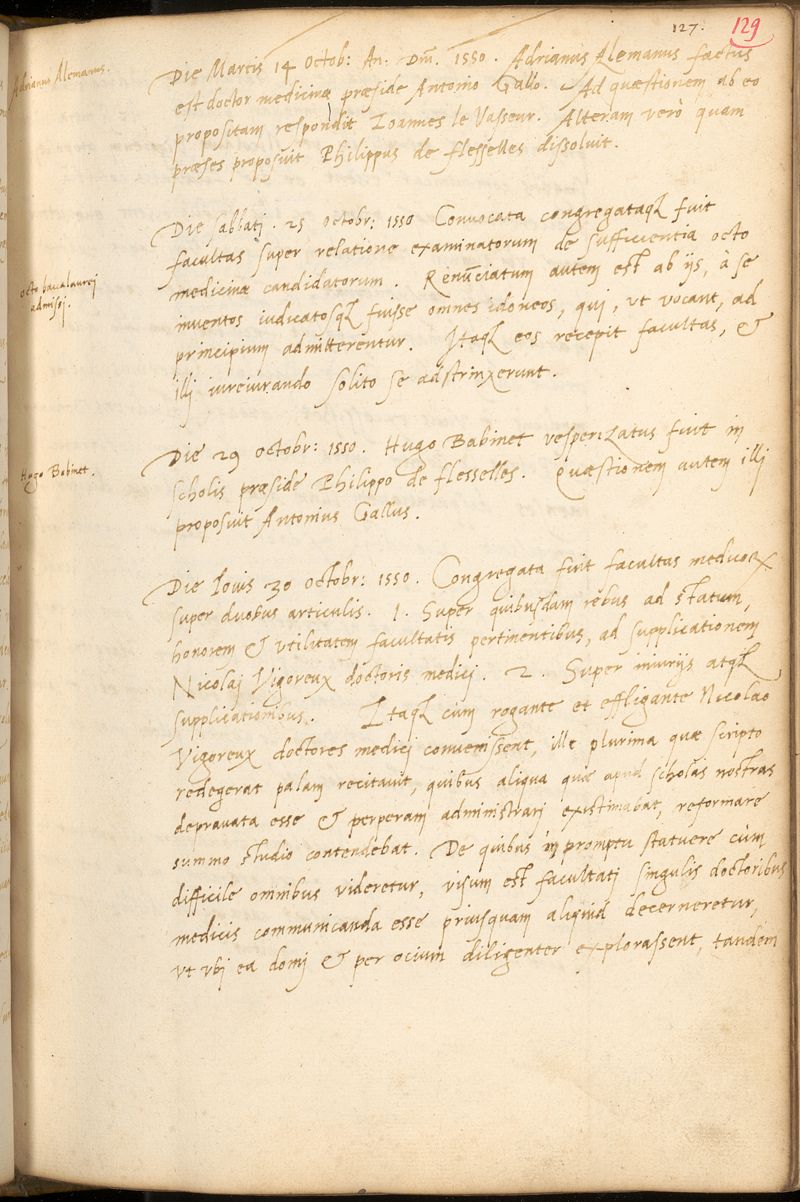 127. 129
Adrianus Alemanus.
Die Martis 14 Octob: An. Dm̄. 1550. Adrianus Alemanus factus
est doctor medicinæ præside Antonio Gallo. Ad quæstionem ab eo
propositam respondit Ioannes le Vasseur. Alteram verò quam
præses proposuit Philippus de flesselles dissoluit.
octo bacalaurej
admissj.
Die sabbatj. 25 octobr: 1550 Convocata congregataq̃ fuit
facultas super relatione examinatorum de sufficientia octo
medicinæ candidatorum. Renūciatum autem est ab ijs, à se
inventos iudicatosq̃ fuisse omnes idoneos, quj, vt vocant, ad
principium admitterentur. Itaq̃ eos recepit facultas, &
illj iureiurando solito se adstrinxerunt.
Hugo Babinet.
Die 29 octobr: 1550. Hugo Babinet vesperizatus fuit in
scholis præside Philippo de flesselles. Quæstionem autem illj
proposuit Antonius Gallus.
Die Iovis 30 octobr: 1550. Congregata fuit facultas medicoꝝ
super duobus articulis. 1. Super quibusdam rebus ad statum,
honorem & vtilitatem facultatis pertinentibus, ad supplicationem
Nicolaj Vigoreux doctoris medicj. 2. Super iniurijs atq̃
supplicationibus. Itaq̃ cùm rogante et effligante Nicolao
Vigoreux doctores medicj convenissent, ille plurima quæ scripto
redegerat palam recitavit, quibus aliqua quæ apud scholas nostras
depravata esse & perperam administrarj existimabat, reformare
summo studio contendebat. De quibus in promptu statuere cùm
difficile omnibus videretur, visum est facultatj singulis doctoribus
medicis communicanda esse priusquam aliquid decerneretur,
vt vbj ea domj & per ocium diligenter explorassent, tandem